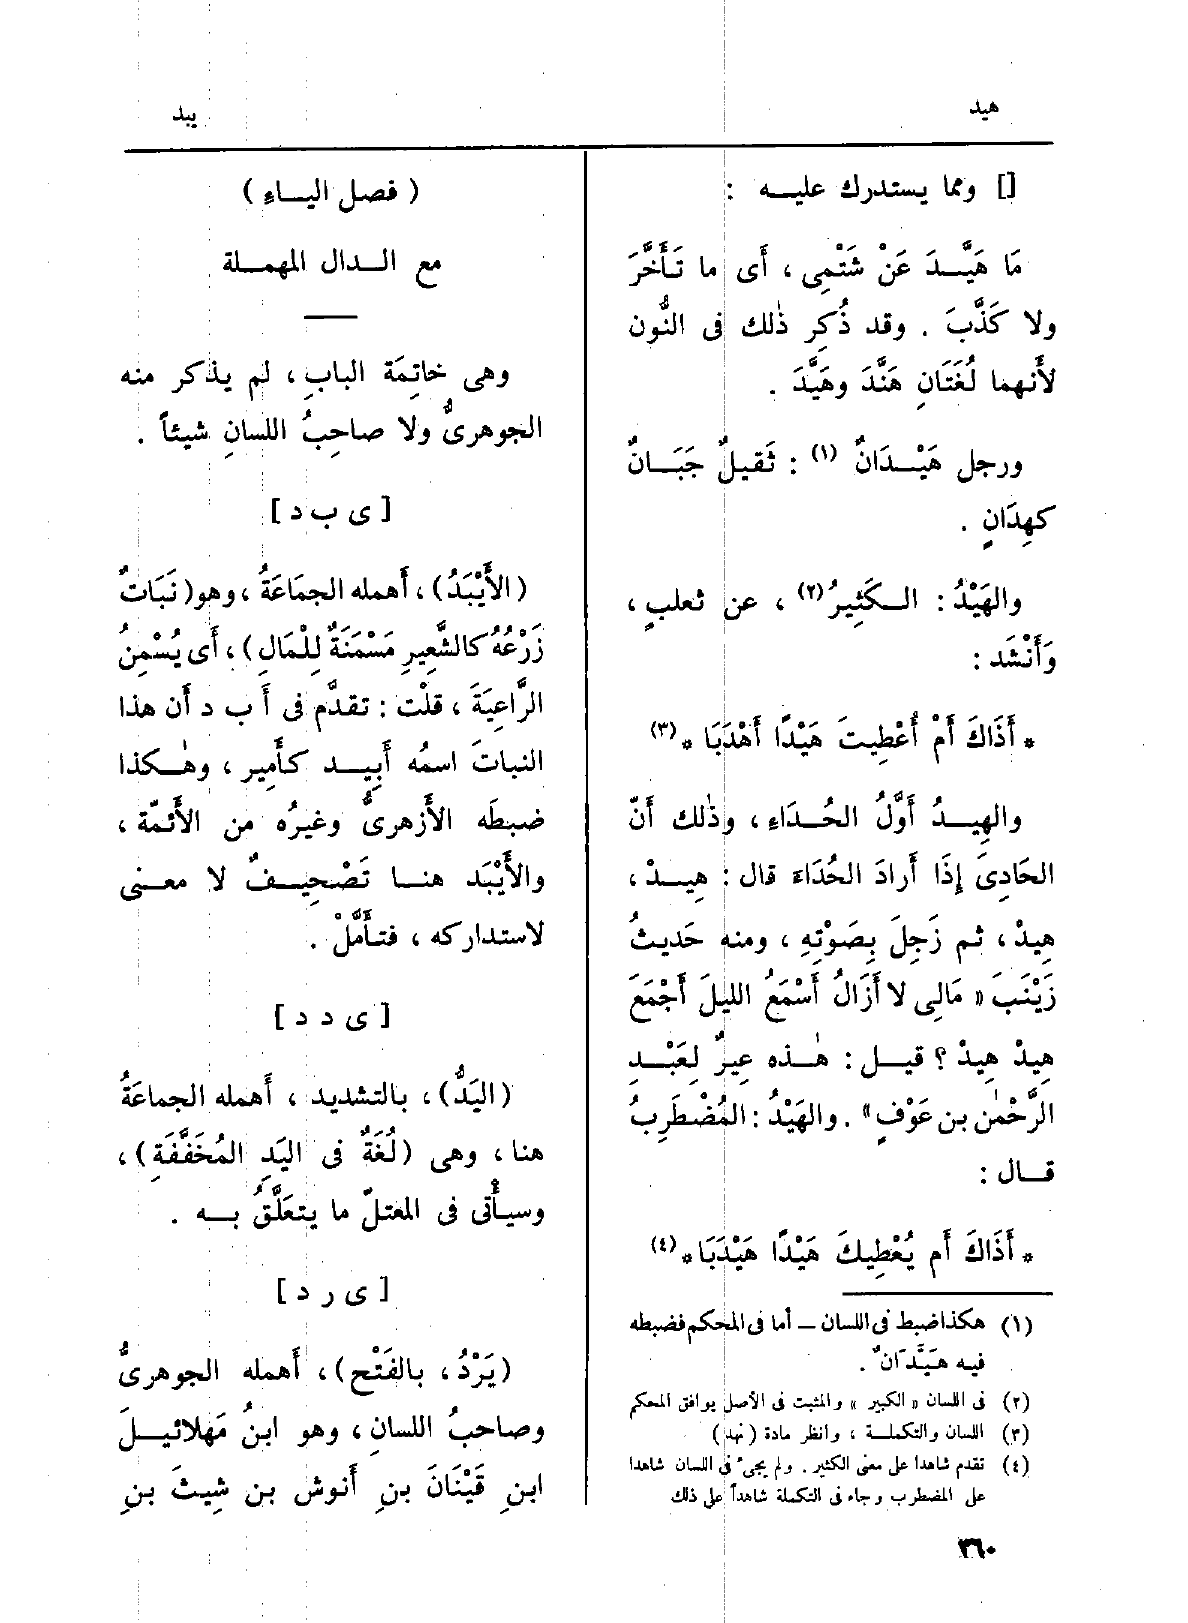 هيد
يبد
[] ومما يستدرك عليــه :
مَا هَيَّــدَ عَنْ شَتْمِى ، أَى ما تَـأَخَّرَ
ولا كَذَّبَ . وقد ذُكِر ذٰلك فى النُّون
لأَنهما لُغَتَانِ هَنَّدَ وهَيَّدَ .
ورجل هَيْــدَانٌ (١) : ثَقيلٌ جَبَــانٌ
كهِدَانٍ .
والهَيْدُ : الــكَثِيرُ (٢) ، عن ثعلبٍ ،
وَأَنْشَد :
* أَذَاكَ أَمْ أُعْطِيتَ هَيْدًا أَهْدَبَا * (٣)
والهِيــدُ أَوَّلُ الحُــدَاءِ ، وذٰلك أَنّ
الحَادِىَ إِذَا أَرادَ الحُدَاءَ قال : هِيــدْ ،
هِيدْ ، ثم زَجِلَ بِصَوْتِهِ ، ومنه حَديثُ
زَيْنَبَ « مَالِى لا أَزَالُ أَسْمَعُ الليلَ أَجْمَعَ
هِيدْ هِيدْ ؟ قيــل : هٰــذه عِيرٌ لِعَبْــدِ
الرَّحْمٰن بن عَوْفٍ » . والهَيْدُ : المُضْطَرِبُ
قــال :
* أَذَاكَ أَم يُعْطِيكَ هَيْدًا هَيْدَبَا * (٤)
(١) هكذا ضبط فى اللسان – أما فى المحكم فضبطه
فيه هَيَّدَانٌ .
(٢) فى اللسان « الكبير » والمثبت فى الأصل يوافق المحكم
(٣) اللسان والتكملــة ، وانظر مادة ( نهد )
(٤) تقدم شاهدا على معنى الكثير . ولم يجئ فى اللسان شاهدا
على المضطرب وجاء فى التكملة شاهداً على ذلك
( فصل اليــاءِ )
مع الــدال المهمــلة
وهى خاتِمَة البابِ ، لم يذكر منه
الجوهرىُّ ولا صاحِبُ اللسانِ شيئاً .
[ ى ب د ]
( الأَيْبَدُ ) ، أَهمله الجمَاعَةُ ، وهو ( نَبَاتٌ
زَرْعُهُ كالشَّعِيرِ مَسْمَنَةٌ لِلْمَالِ ) ، أَى يُسْمِنُ
الرَّاعِيَةَ ، قلْت : تقدَّم فى أَ ب د أَن هذا
النباتَ اسمُه أَبِيــد كـأَمِير ، وهٰـكذا
ضبطَه الأَزهرىُّ وغيرُه من الأَئمّة ،
والأَيْبَد هنــا تَصْحِيــفٌ لا معــنى
لاستدراكه ، فتـأَمَّلْ .
[ ى د د ]
( اليَدُّ ) ، بالتشديد ، أَهمله الجماعَةُ
هنا ، وهى ( لُغَةٌ فى اليَدِ المُخَفَّفَةِ ) ،
وسيـأْتى فى المعتلّ ما يتعَلَّقُ بــه .
[ ى ر د ]
( يَرْدُ ، بالفَتْح ) ، أَهمله الجوهرىُّ
وصاحبُ اللسانِ ، وهو ابنُ مَهلائيــلَ
ابنِ قَيْنَانَ بنِ أَنوش بن شِيثَ بنِ
٣٦٠